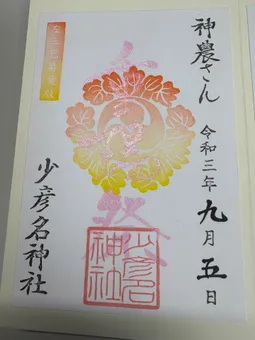 神農さん
令和三年
九月五日
少彦名神社
少彦名
神社